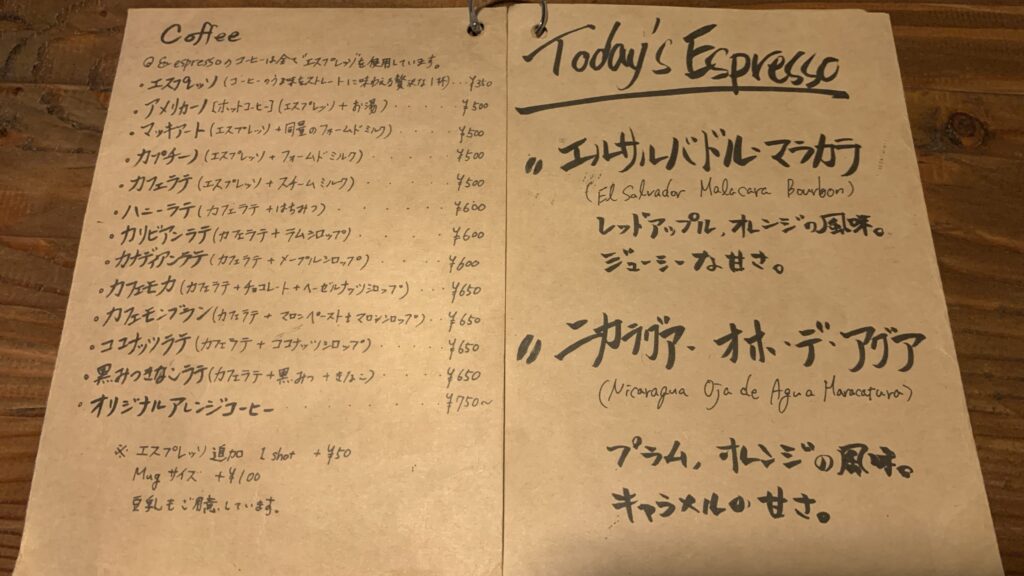 Coffee
Q&espressoのコーヒーは全て"エスプレッソ"を使用しています。
・エスプレッソ(コーヒーのうま味をストレートに味わえる贅沢な1杯)...¥350
・アメリカーノ[ホットコーヒー](エスプレッソ+お湯)......¥500
・マッキアート(エスプレッソ+同量のフォームドミルク)......¥500
・カプチーノ(エスプレッソ+フォームドミルク)......¥500
・カフェラテ(エスプレッソ+スチームミルク)......¥500
・ハニーラテ(カフェラテ+はちみつ)......¥600
・カリビアンラテ(カフェラテ+ラムシロップ)......¥600
・カナディアンラテ(カフェラテ+メープルシロップ)......¥600
・カフェモカ(カフェラテ+チョコレート+ヘーゼルナッツシロップ)...¥650
・カフェモンブラン(カフェラテ+マロンペースト+マロンシロップ)...¥650
・ココナッツラテ(カフェラテ+ココナッツシロップ)......¥650
・黒みつきなこラテ(カフェラテ+黒みつ+きなこ)......¥650
・オリジナルアレンジコーヒー......¥750〜
※ エスプレッソ追加 1shot +¥50
Mugサイズ +¥100
豆乳もご用意しています。
Today's Espresso
〃エルサルバドル・マラカラ
(El Salvador Malacara Bourbon)
レッドアップル,オレンジの風味。
ジューシーな甘さ。
〃ニカラグア・オホ・デ・アグア
(Nicaragua Oja de Agua Maracatura)
プラム,オレンジの風味。
キャラメルの甘さ。